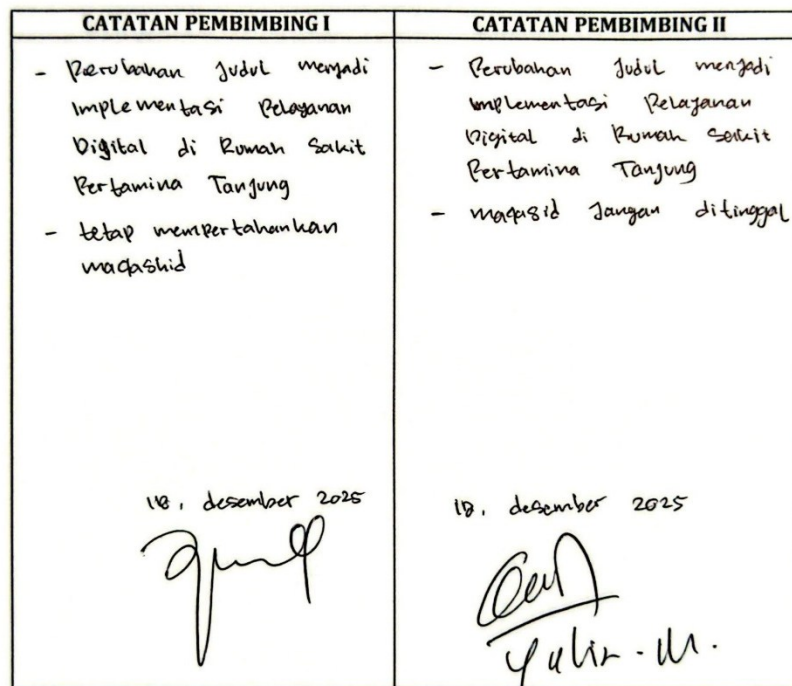 CATATAN PEMBIMBING I
- Perubahan Judul menjadi
Implementasi Pelayanan
Digital di Rumah Sakit
Pertamina Tanjung
- tetap mempertahankan
maqashid
18, desember 2025
CATATAN PEMBIMBING II
- Perubahan Judul menjadi
Implementasi Pelayanan
Digital di Rumah Sakit
Pertamina Tanjung
- maqasid Jangan ditinggal
18, desember 2025